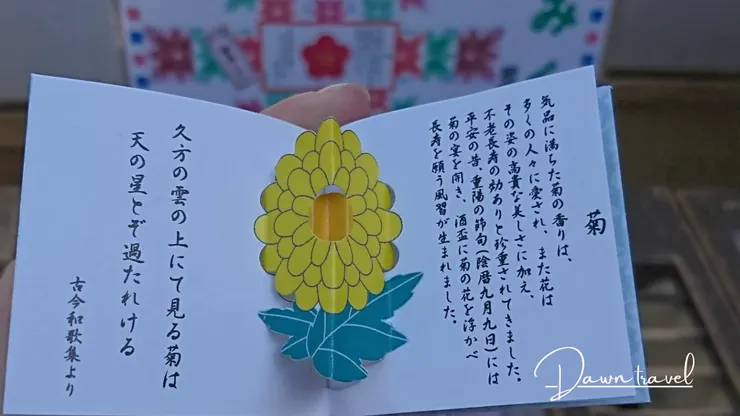 菊
気品に満ちた菊の香りは、
多くの人々に愛され、また花は
その姿の高貴な美しさに加え、
不老長寿の効ありと珍重されてきました。
平安の昔、重陽の節句(陰暦九月九日)には
菊の宴を開き、酒盃に菊の花を浮かべ
長寿を願う風習が生まれました。
久方の雲の上にて見る菊は
天の星とぞ過たれける
古今和歌集より
み
Dawn travel